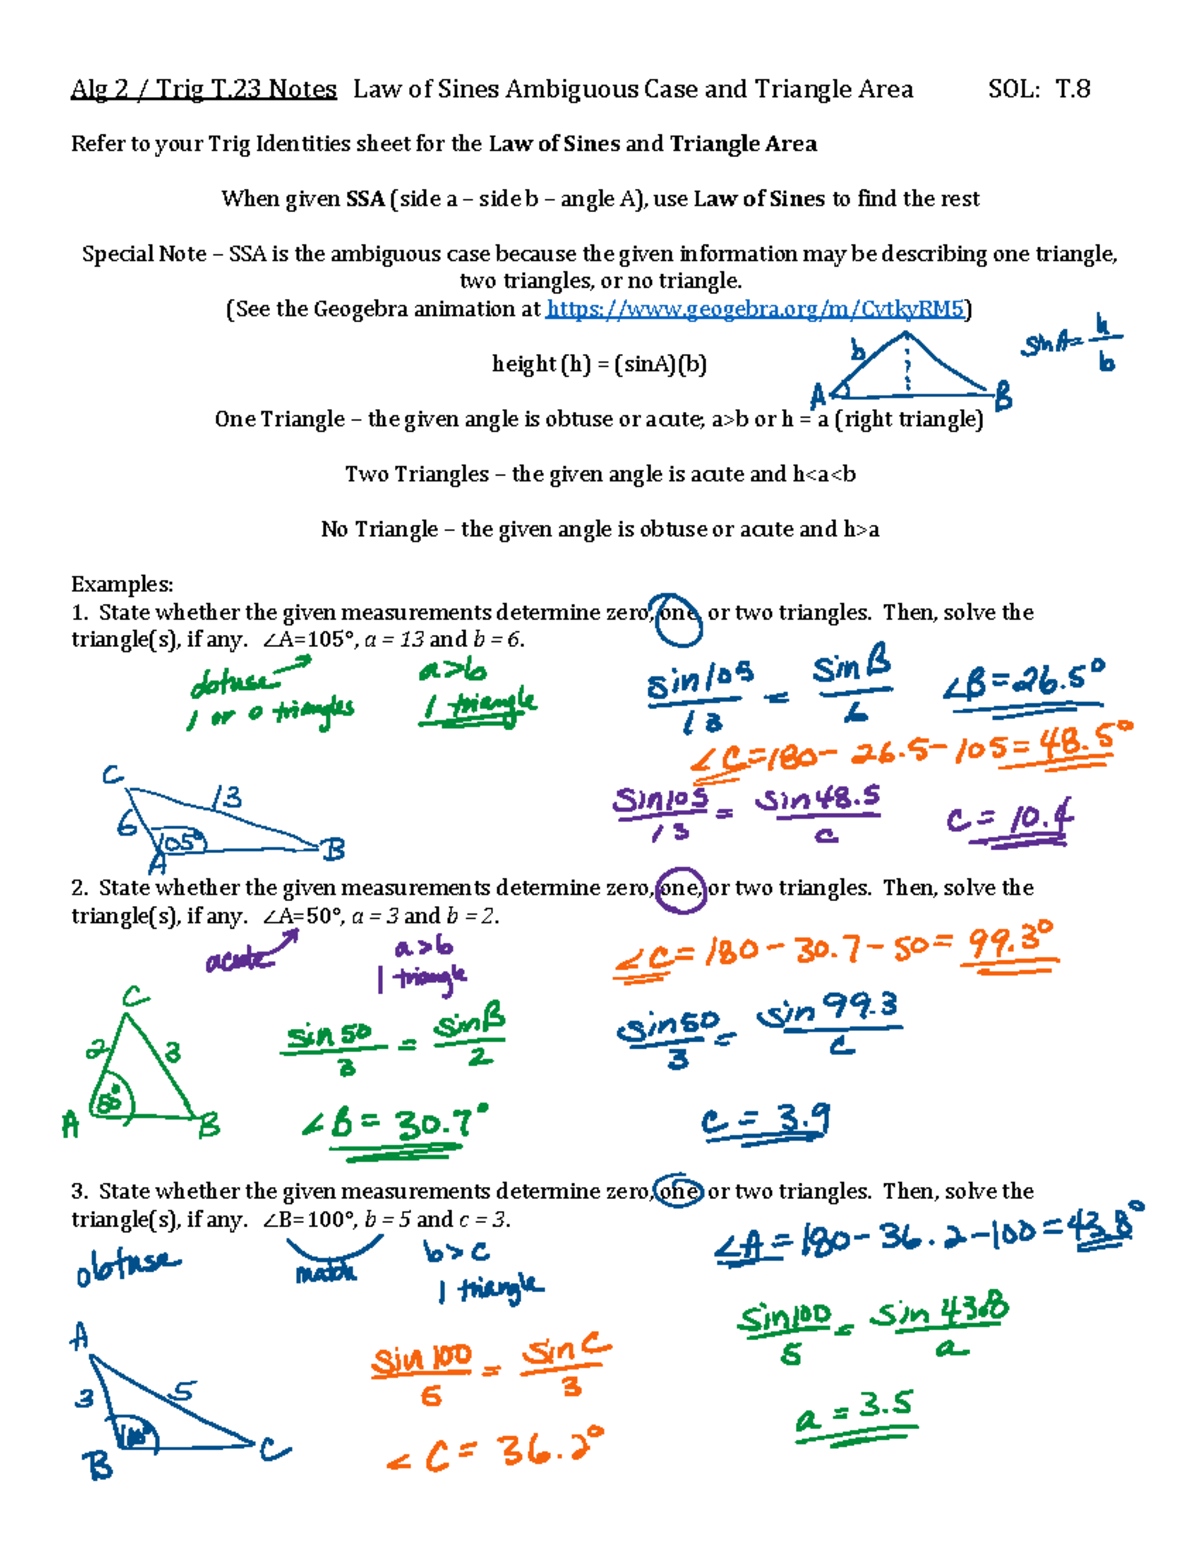 Alg 2 / Trig T.23 Notes Law of Sines Ambiguous Case and Triangle Area SOL: T.8
Refer to your Trig Identities sheet for the Law of Sines and Triangle Area
When given SSA (side a – side b – angle A), use Law of Sines to find the rest
Special Note – SSA is the ambiguous case because the given information may be describing one triangle,
two triangles, or no triangle.
(See the Geogebra animation at https://www.geogebra.org/m/CvtkyRM5)
sinA = h/b
b
height (h) = (sinA)(b)
A B
One Triangle – the given angle is obtuse or acute; a>b or h = a (right triangle)
Two Triangles – the given angle is acute and h<a<b
No Triangle – the given angle is obtuse or acute and h>a
Examples:
1. State whether the given measurements determine zero, one, or two triangles. Then, solve the
triangle(s), if any. ∠A=105°, a = 13 and b = 6.
obtuse a>b
1 or 0 triangles 1 triangle
sin105/13 = sinB/6 ∠B=26.5°
∠C=180-26.5-105=48.5°
sin105/13 = sin48.5/c c=10.4
C 13
6 105°
A B
2. State whether the given measurements determine zero, one, or two triangles. Then, solve the
triangle(s), if any. ∠A=50°, a = 3 and b = 2.
acute a>b
1 triangle
∠C=180-30.7-50=99.3°
C
2 3
50°
A B
sin50/3 = sinB/2
sin50/3 = sin99.3/c
∠B=30.7°
c=3.9
3. State whether the given measurements determine zero, one, or two triangles. Then, solve the
triangle(s), if any. ∠B=100°, b = 5 and c = 3.
obtuse match b>c
1 triangle
∠A=180-36.2-100=43.8°
A
3 5
100°
B C
sin100/5 = sinC/3
sin100/5 = sin43.8/a
∠C=36.2°
a=3.5